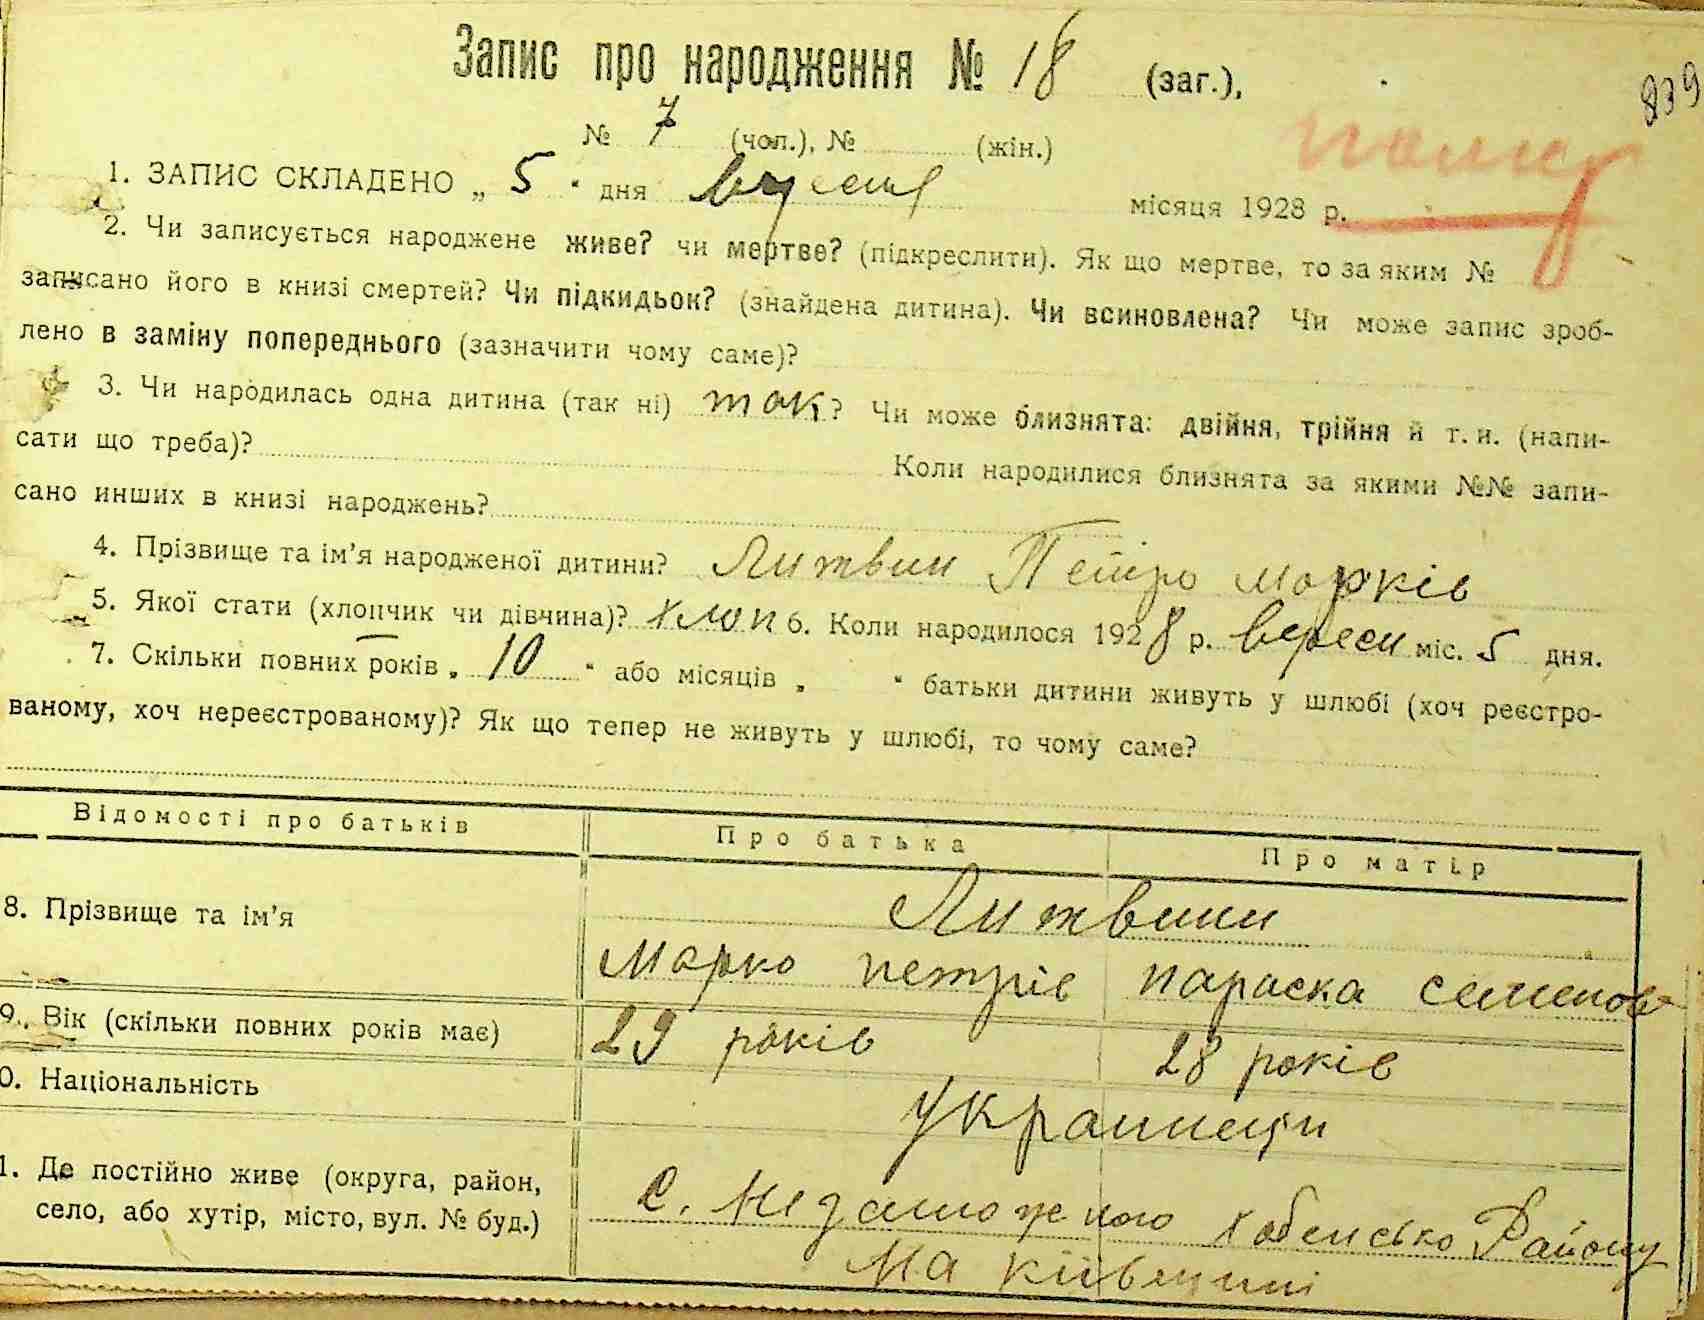 Запис про народження № 18 (заг.),
839
№ 7 (чол.), № (жін.)
помер
1. ЗАПИС СКЛАДЕНО „ 5 “ дня вересня місяця 1928 р.
2. Чи записується народжене живе? чи мертве? (підкреслити). Як що мертве, то за яким №
записано його в книзі смертей? Чи підкидьок? (знайдена дитина). Чи всиновлена? Чи може запис зроб-
лено в заміну попереднього (зазначити чому саме)?
3. Чи народилась одна дитина (так ні) так? Чи може близнята: двійня, трійня й т. и. (напи-
сати що треба)? Коли народилися близнята за якими №№ запи-
сано инших в книзі народжень?
4. Прізвище та ім’я народженої дитини? Литвин Петро Марків
5. Якої стати (хлопчик чи дівчина)? хлоп 6. Коли народилося 1928 р. вересн міс. 5 дня.
7. Скільки повних років „ 10 “ або місяців „ “ батьки дитини живуть у шлюбі (хоч реєстро-
ваному, хоч нереєстрованому)? Як що тепер не живуть у шлюбі, то чому саме?
Відомості про батьків Про батька Про матір
8. Прізвище та ім’я Литвини
Марко петрів параска семенов
9. Вік (скільки повних років має) 29 років 28 років
0. Національність українци
1. Де постійно живе (округа, район,
село, або хутір, місто, вул. № буд.) С. Незаможного Хабенсько Району
на київщині